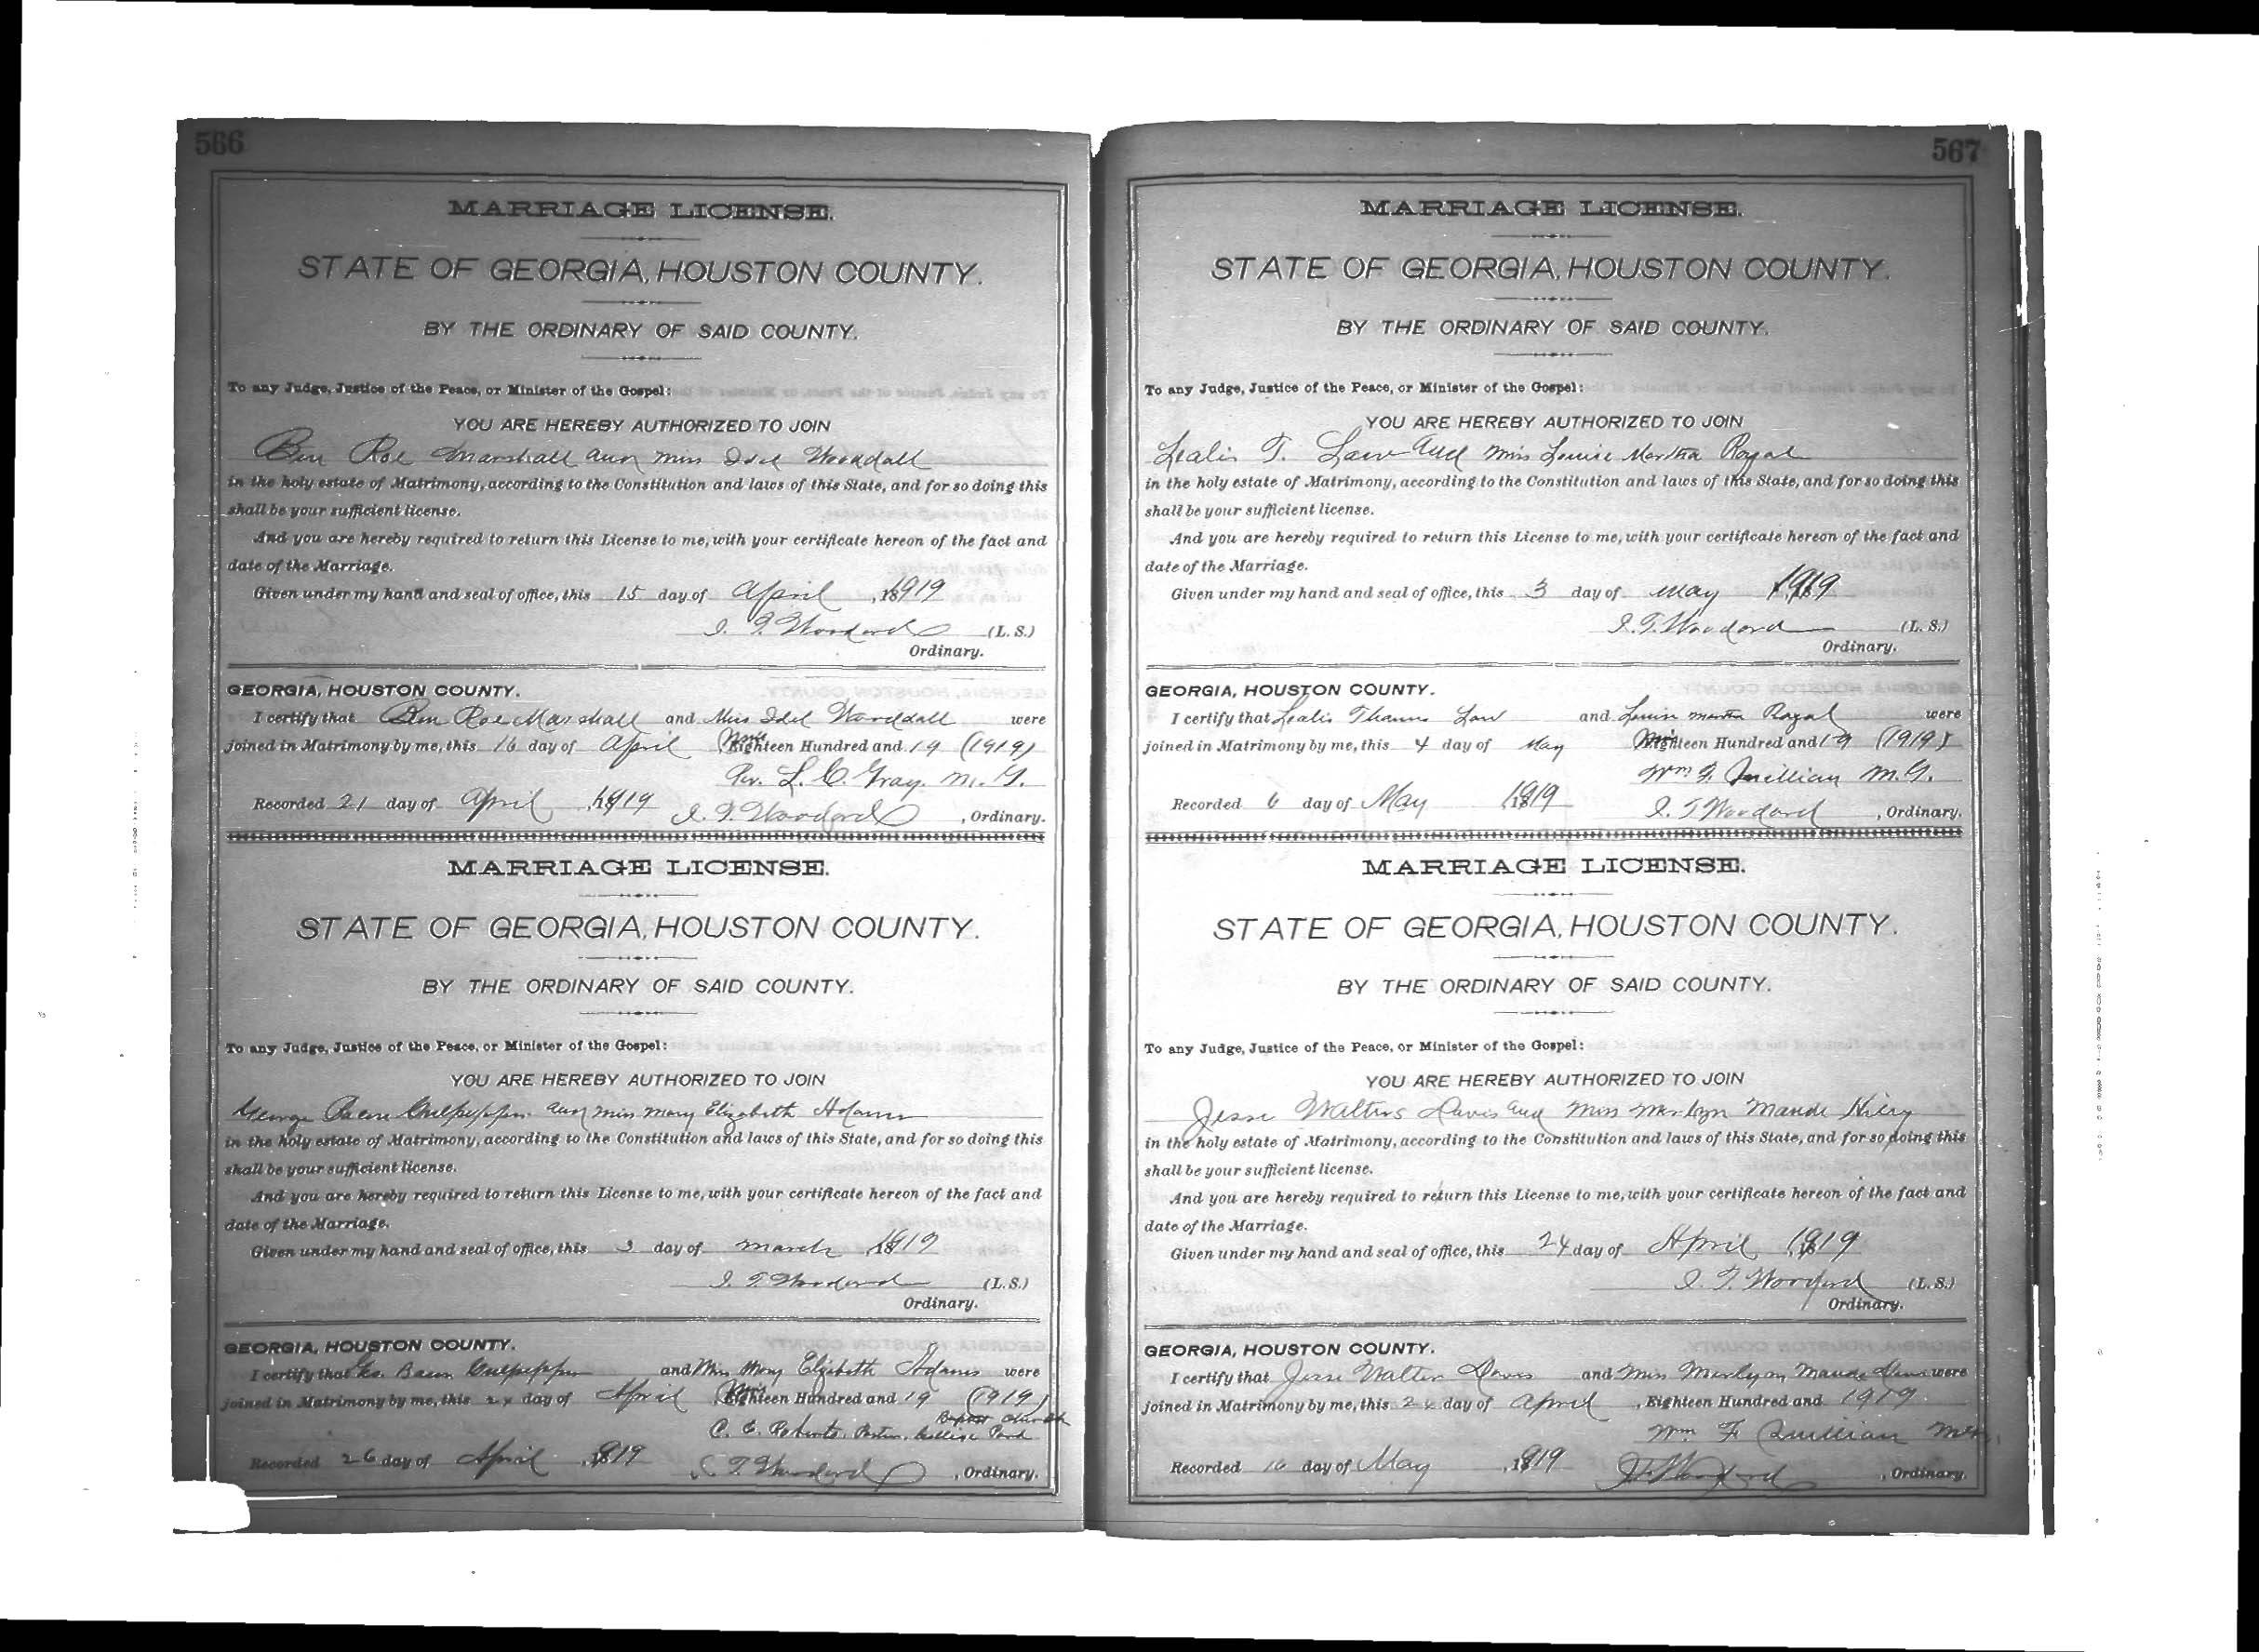 566
MARRIAGE LICENSE.
STATE OF GEORGIA, HOUSTON COUNTY.
BY THE ORDINARY OF SAID COUNTY.
To any Judge, Justice of the Peace, or Minister of the Gospel:
YOU ARE HEREBY AUTHORIZED TO JOIN
Ben Roe Marshall and Miss Idel Wooddall
in the holy estate of Matrimony, according to the Constitution and laws of this State, and for so doing this
shall be your sufficient license.
And you are hereby required to return this License to me, with your certificate hereon of the fact and
date of the Marriage.
Given under my hand and seal of office, this 15 day of April, 1919
(L. S.)
Ordinary.
GEORGIA, HOUSTON COUNTY.
I certify that Ben Roe Marshall and Miss Idel Wooddall were
joined in Matrimony by me, this 16 day of April Nineteen Hundred and 19 (1919)
Rev. L. C. Gray. M. G.
Recorded 21 day of April, 1919 , Ordinary.
MARRIAGE LICENSE.
STATE OF GEORGIA, HOUSTON COUNTY.
BY THE ORDINARY OF SAID COUNTY.
To any Judge, Justice of the Peace, or Minister of the Gospel:
YOU ARE HEREBY AUTHORIZED TO JOIN
George Culpepper and Miss Mary Elizabeth Adams
in the holy estate of Matrimony, according to the Constitution and laws of this State, and for so doing this
shall be your sufficient license.
And you are hereby required to return this License to me, with your certificate hereon of the fact and
date of the Marriage.
Given under my hand and seal of office, this 3 day of March, 1919
(L. S.)
Ordinary.
GEORGIA, HOUSTON COUNTY.
I certify that Geo. Culpepper and Miss Mary Elizabeth Adams were
joined in Matrimony by me, this 24 day of April Nineteen Hundred and 19 (1919)
Baptist Church
C. C. Roberts, Pastor, College Park
Recorded 26 day of April, 1919 , Ordinary.
567
MARRIAGE LICENSE.
STATE OF GEORGIA, HOUSTON COUNTY.
BY THE ORDINARY OF SAID COUNTY.
To any Judge, Justice of the Peace, or Minister of the Gospel:
YOU ARE HEREBY AUTHORIZED TO JOIN
Lealis T. Law and Miss Louise Martha Royal
in the holy estate of Matrimony, according to the Constitution and laws of this State, and for so doing this
shall be your sufficient license.
And you are hereby required to return this License to me, with your certificate hereon of the fact and
date of the Marriage.
Given under my hand and seal of office, this 3 day of May 1919
(L. S.)
Ordinary.
GEORGIA, HOUSTON COUNTY.
I certify that Lealis Law and Louise Martha Royal were
joined in Matrimony by me, this 4 day of May Nineteen Hundred and 19 (1919)
Wm. F. Quillian M.G.
Recorded 6 day of May 1919 , Ordinary.
MARRIAGE LICENSE.
STATE OF GEORGIA, HOUSTON COUNTY.
BY THE ORDINARY OF SAID COUNTY.
To any Judge, Justice of the Peace, or Minister of the Gospel:
YOU ARE HEREBY AUTHORIZED TO JOIN
Jesse Walters Davis and Miss Merlyn Maude
in the holy estate of Matrimony, according to the Constitution and laws of this State, and for so doing this
shall be your sufficient license.
And you are hereby required to return this License to me, with your certificate hereon of the fact and
date of the Marriage.
Given under my hand and seal of office, this 24 day of April 1919
(L. S.)
Ordinary.
GEORGIA, HOUSTON COUNTY.
I certify that Jesse Walter Davis and Miss Merlyn Maude were
joined in Matrimony by me, this 24 day of April, Eighteen Hundred and 1919.
Wm F. Quillian
Recorded 16 day of May, 1919 , Ordinary.